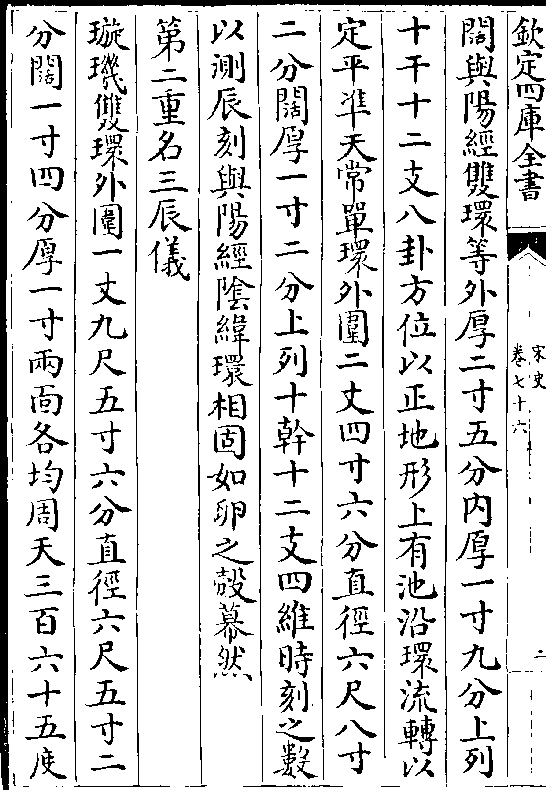 欽定四庫全書
宋史
卷七十六
二
闊與陽經雙環等外厚二寸五分内厚一寸九分上列
十干十二支八卦方位以正地形上有池沿環流轉以
定平準天常單環外圍二丈四寸六分直徑六尺八寸
二分闊厚一寸二分上列十幹十二支四維時刻之數
以測辰刻與陽經隂緯環相固如卵之殻幕然
第二重名三辰儀
璇璣雙環外圍一丈九尺五寸六分直徑六尺五寸二
分闊一寸四分厚一寸兩面各均周天三百六十五度